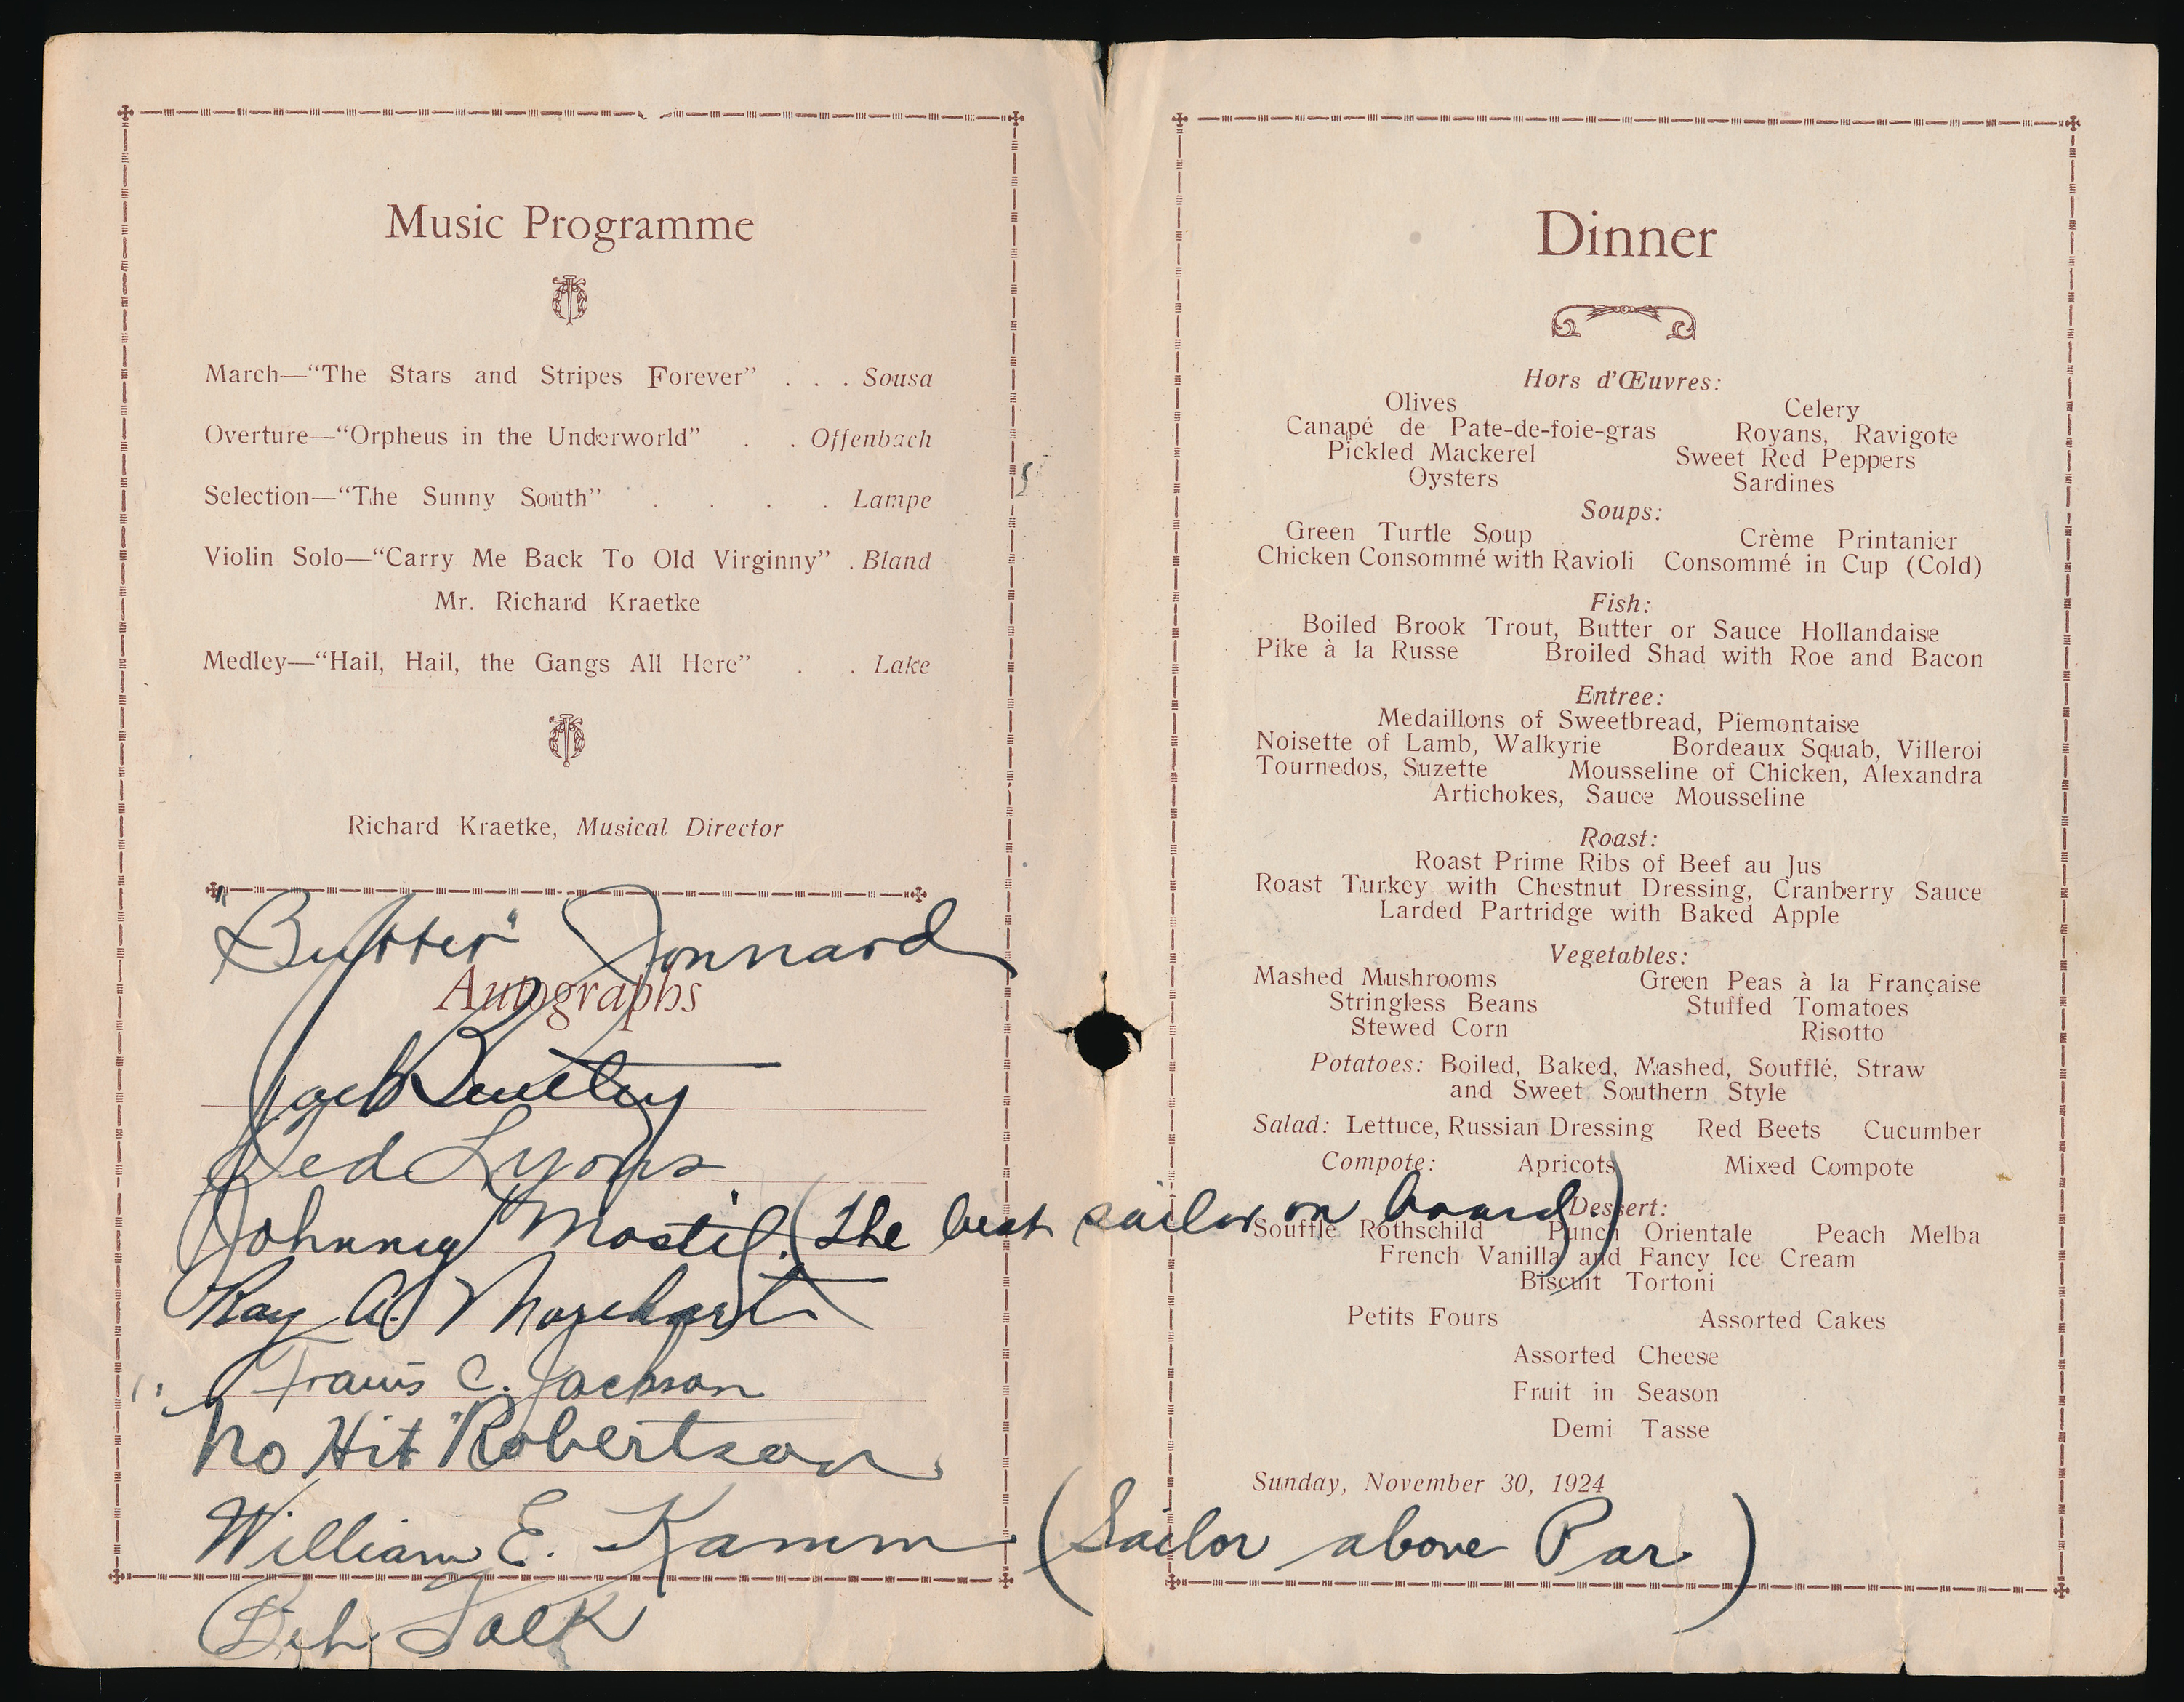 Music Programme
March—“The Stars and Stripes Forever” . . . Sousa
Overture—“Orpheus in the Underworld” . . Offenbach
Selection—“The Sunny South” . . . . Lampe
Violin Solo—“Carry Me Back To Old Virginny” . Bland
Mr. Richard Kraetke
Medley—“Hail, Hail, the Gangs All Here” . . Lake
Richard Kraetke, Musical Director
"Butter" Jonnard
Autographs
Jack Bentley
Ted Lyons
Johnny Mostil. (The best sailor on board.)
Ray A. Morehart
Travis C. Jackson
"No Hit" Robertson
William E. Kamm (Sailor above Par.)
Bib Falk
Dinner
Hors d'Œuvres:
Olives Celery
Canapé de Pate-de-foie-gras Royans, Ravigote
Pickled Mackerel Sweet Red Peppers
Oysters Sardines
Soups:
Green Turtle Soup Crème Printanier
Chicken Consommé with Ravioli Consommé in Cup (Cold)
Fish:
Boiled Brook Trout, Butter or Sauce Hollandaise
Pike à la Russe Broiled Shad with Roe and Bacon
Entree:
Medaillons of Sweetbread, Piemontaise
Noisette of Lamb, Walkyrie Bordeaux Squab, Villeroi
Tournedos, Suzette Mousseline of Chicken, Alexandra
Artichokes, Sauce Mousseline
Roast:
Roast Prime Ribs of Beef au Jus
Roast Turkey with Chestnut Dressing, Cranberry Sauce
Larded Partridge with Baked Apple
Vegetables:
Mashed Mushrooms Green Peas à la Française
Stringless Beans Stuffed Tomatoes
Stewed Corn Risotto
Potatoes: Boiled, Baked, Mashed, Soufflé, Straw
and Sweet Southern Style
Salad: Lettuce, Russian Dressing Red Beets Cucumber
Compote: Apricots Mixed Compote
Dessert:
Souffle Rothschild Punch Orientale Peach Melba
French Vanilla and Fancy Ice Cream
Biscuit Tortoni
Petits Fours Assorted Cakes
Assorted Cheese
Fruit in Season
Demi Tasse
Sunday, November 30, 1924